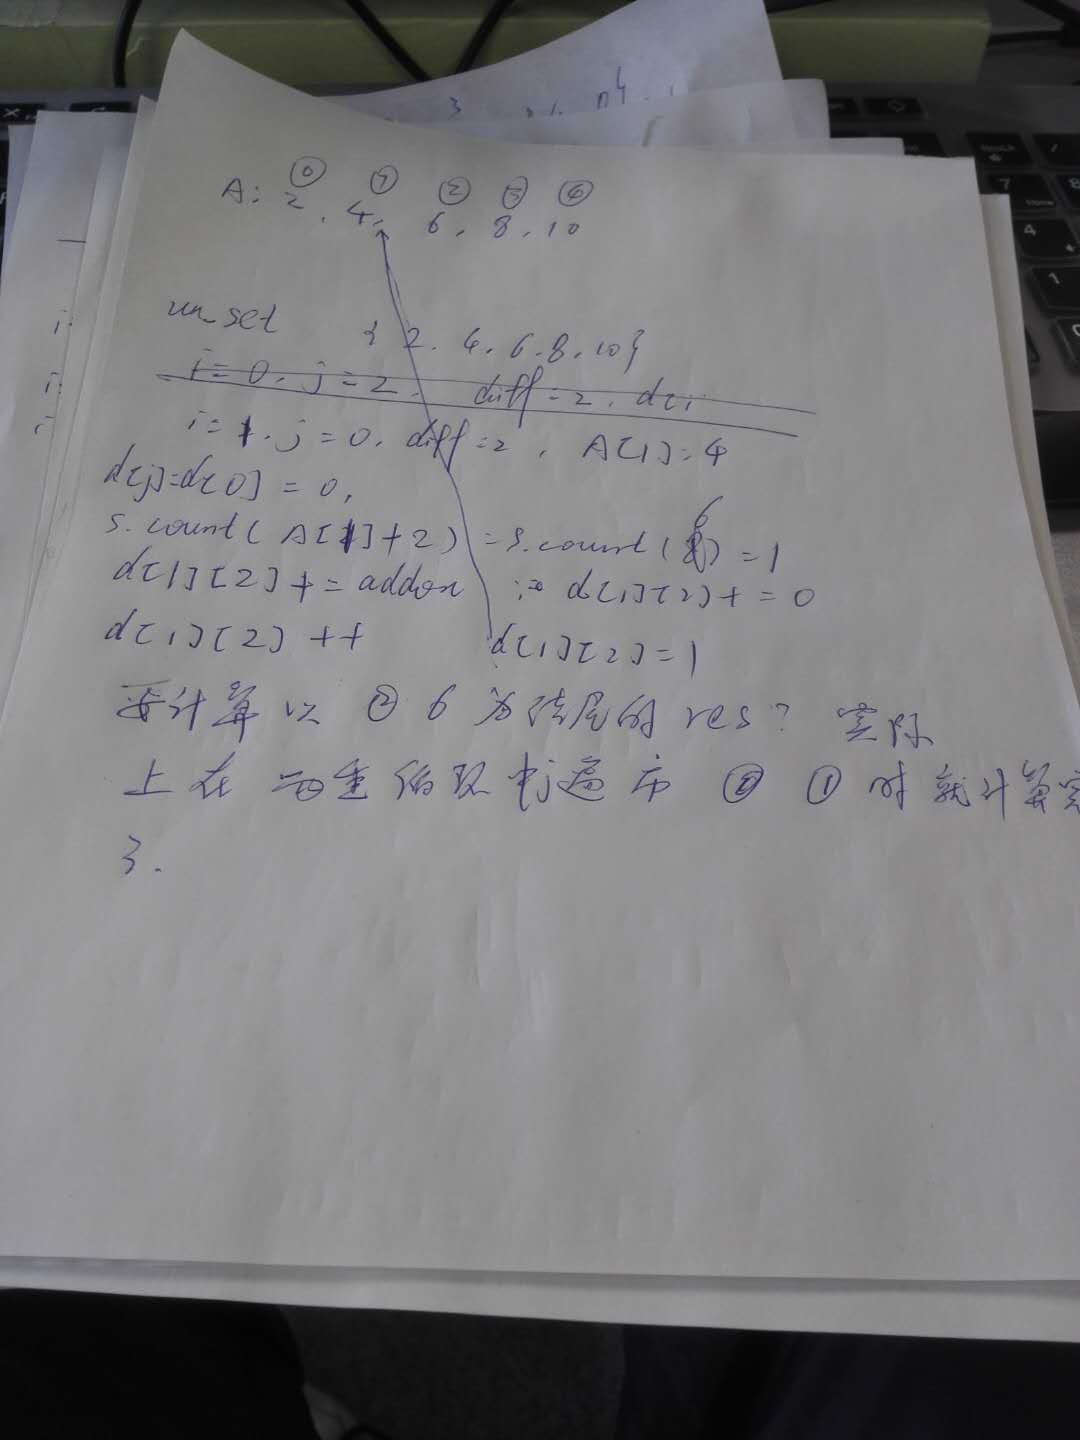 ⓪ ① ② ③ ④
A: 2, 4, 6, 8, 10
un_set { 2. 4. 6. 8. 10}
i=0. j=2. diff=2. d[i
i=1. j=0. diff=2, A[1]=4
d[j]=d[0]=0,
s.count(A[1]+2)=s.count(6)=1
d[1][2]+=addon ∴ d[1][2]+=0
d[1][2]++ d[1][2]=1
要计算以②6为结尾的res? 实际
上在 循环中遍历 ⓪ ① 时就计算完
了.